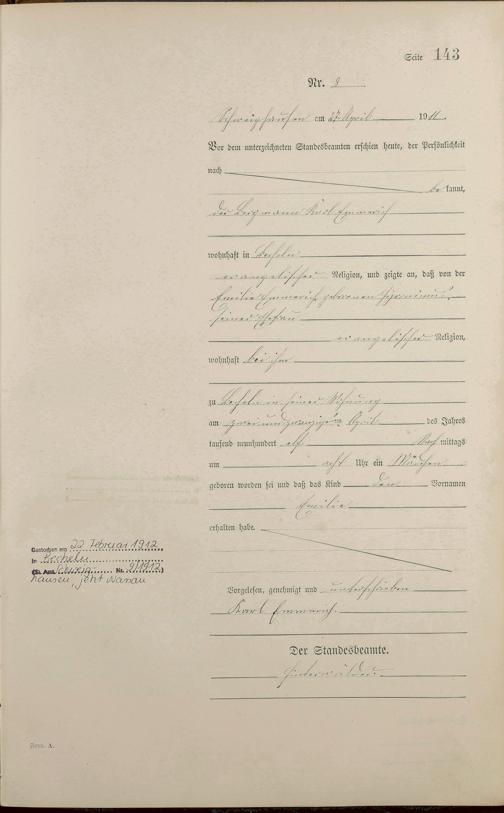 Seite 143
Nr. 9
Schweighausen am 27. April 1911.
Vor dem unterzeichneten Standesbeamten erschien heute, der Persönlichkeit
nach
be kannt,
der Bergmann Karl Emmerich
wohnhaft in Becheln
evangelischer Religion, und zeigte an, daß von der
Emilie Emmerich geborenen
seiner Ehefrau
evangelischer Religion,
wohnhaft bei ihm
zu Becheln in seiner Wohnung
am zweiundzwanzigsten April des Jahres
tausend neunhundert elf Nach mittags
um acht Uhr ein Mädchen
geboren worden sei und daß das Kind den Vornamen
Emilie
erhalten habe.
Gestorben am 22 Februar 1912
in Becheln
(St. Amt Schweig- Nr. 9/1912)
hausen, jetzt Nassau
Vorgelesen, genehmigt und unterschrieben
Karl Emmerich.
Der Standesbeamte.
Form. A.